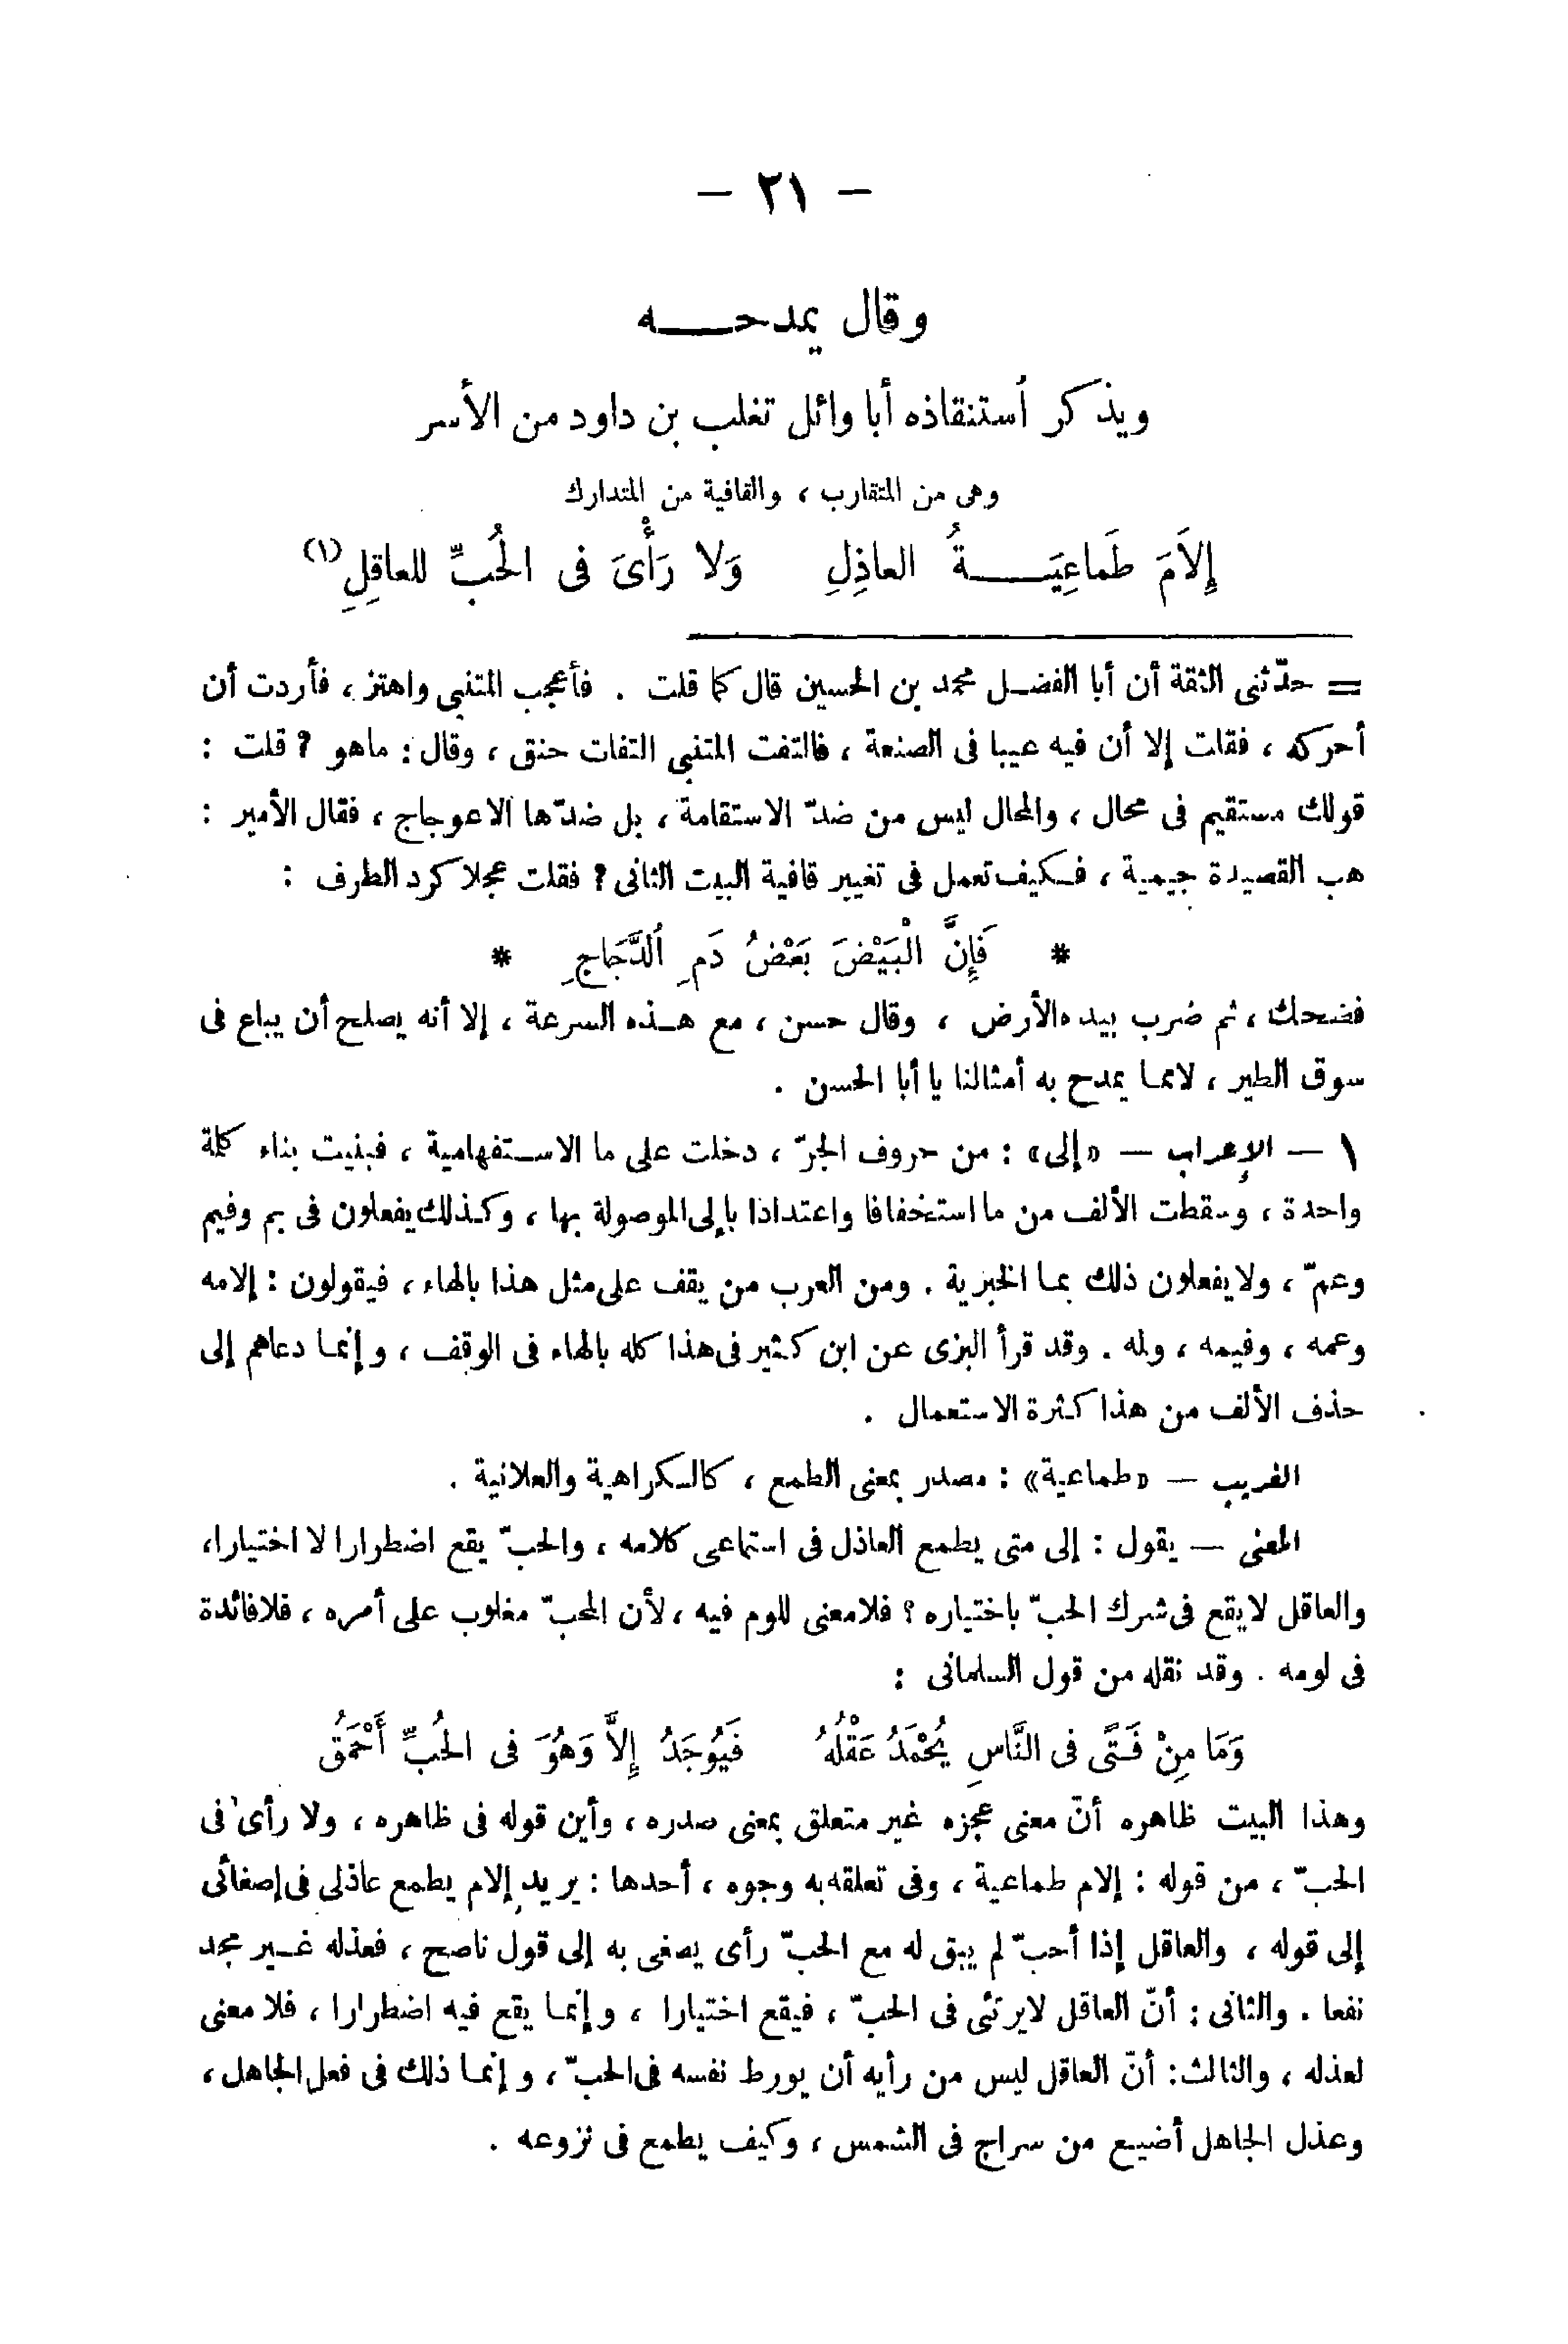 — ٢١ —
وقال يمدحـــه
ويذكر ٱستنقاذه أبا وائل تغلب بن داود من الأسر
وهى من المتقارب ، والقافية من المتدارك
إِلاَمَ طَمَاعِيَـــةُ العاذِلِ     وَلا رَأْىَ فى الحُبِّ للعاقِلِ (١)
= حدّثنى الثقة أن أبا الفضـل محمد بن الحسين قال كما قلت . فأعجب المتنبى واهتز ، فأردت أن
أحركه ، فقلت إلا أن فيه عيبا فى الصنعة ، فالتفت المتنبى التفات حنق ، وقال : ماهو ؟ قلت :
قولك مستقيم فى محال ، والمحال ليس من ضدّ الاستقامة ، بل ضدّها الاعوجاج ، فقال الأمير :
هب القصيدة جيمية ، فـكيف تعمل فى تغيير قافية البيت الثانى ؟ فقلت عجلا كرد الطرف :
* فَإِنَّ الْبَيْضَ بَعْضُ دَمِ ٱلدَّجَاجِ *
فضحك ، ثم ضرب بيده الأرض ، وقال حسن ، مع هـذه السرعة ، إلا أنه يصلح أن يباع فى
سوق الطير ، لا مما يمدح به أمثالنا يا أبا الحسن .
١ — الإعراب — «إلى» : من حروف الجرّ ، دخلت على ما الاسـتفهامية ، فبنيت بناء كلمة
واحدة ، وسقطت الألف من ما استخفافا واعتدادا بإلى الموصولة بها ، وكـذلك يفعلون فى بم وفيم
وعمّ ، ولا يفعلون ذلك بما الخبرية . ومن العرب من يقف على مثل هذا بالهاء ، فيقولون : إلامه
وعمه ، وفيمه ، ولمه . وقد قرأ البزى عن ابن كثير فى هذا كله بالهاء فى الوقف ، وإنما دعاهم إلى
حذف الألف من هذا كثرة الاستعمال .
الغريب — «طماعية» : مصدر بمعنى الطمع ، كالـكراهية والعلانية .
المعنى — يقول : إلى متى يطمع العاذل فى استماعى كلامه ، والحبّ يقع اضطرارا لا اختيارا،
والعاقل لا يقع فى شرك الحبّ باختياره ؟ فلا معنى للوم فيه ، لأن المحبّ مغلوب على أمره ، فلا فائدة
فى لومه . وقد نقله من قول السلمانى :
وَمَا مِنْ فَتًى فى النَّاسِ يُحْمَدُ عَقْلُهُ     فَيُوجَدُ إِلاَّ وَهُوَ فى الحُبِّ أَحْمَقُ
وهذا البيت ظاهره أنّ معنى عجزه غير متعلق بمعنى صدره ، وأين قوله فى ظاهره ، ولا رأى فى
الحبّ ، من قوله : إلام طماعية ، وفى تعلقه به وجوه ، أحدها : يريد إلام يطمع عاذلى فى إصغائى
إلى قوله ، والعاقل إذا أحبّ لم يبق له مع الحبّ رأى يصغى به إلى قول ناصح ، فعذله غـير مجد
نفعا . والثانى : أنّ العاقل لا يرتئى فى الحبّ ، فيقع اختيارا ، وإنما يقع فيه اضطرارا ، فلا معنى
لعذله ، والثالث : أنّ العاقل ليس من رأيه أن يورط نفسه فى الحبّ ، وإنما ذلك فى فعل الجاهل ،
وعذل الجاهل أضيع من سراج فى الشمس ، وكيف يطمع فى نزوعه .